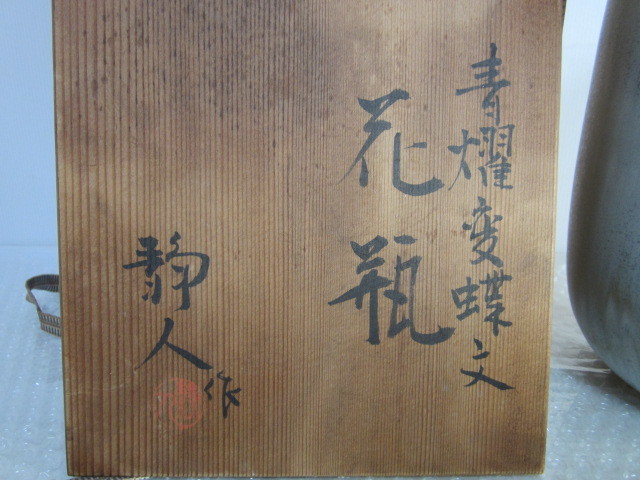 青燿変蝶文
花瓶
静人作